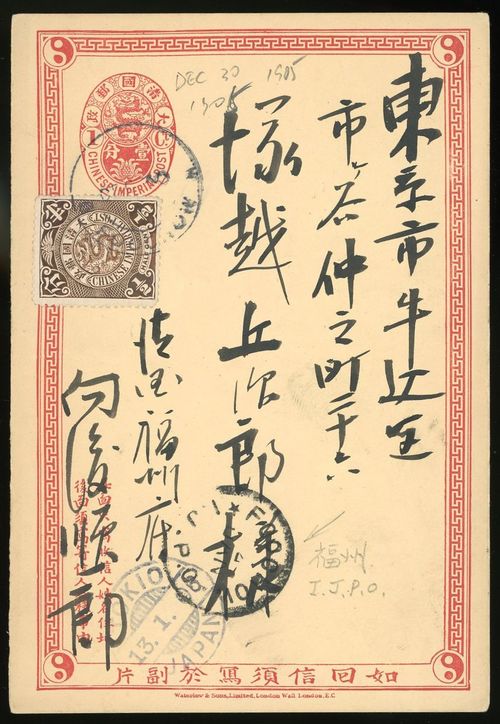 東京市牛込区
市ヶ谷仲之町二十六
塚越
治郎
清国福州府
向後順
郎
DEC 30 1905
1905
大清國郵政
1 C
壹分
CHINESE IMPERIAL POST
CHINESE IMPERIAL POST
福州
I.J.P.O.
I.J.P.O
TOKIO
13.1.06
JAPAN
如回信須寫於副片
Waterlow & Sons, Limited, London Wall, London, E.C